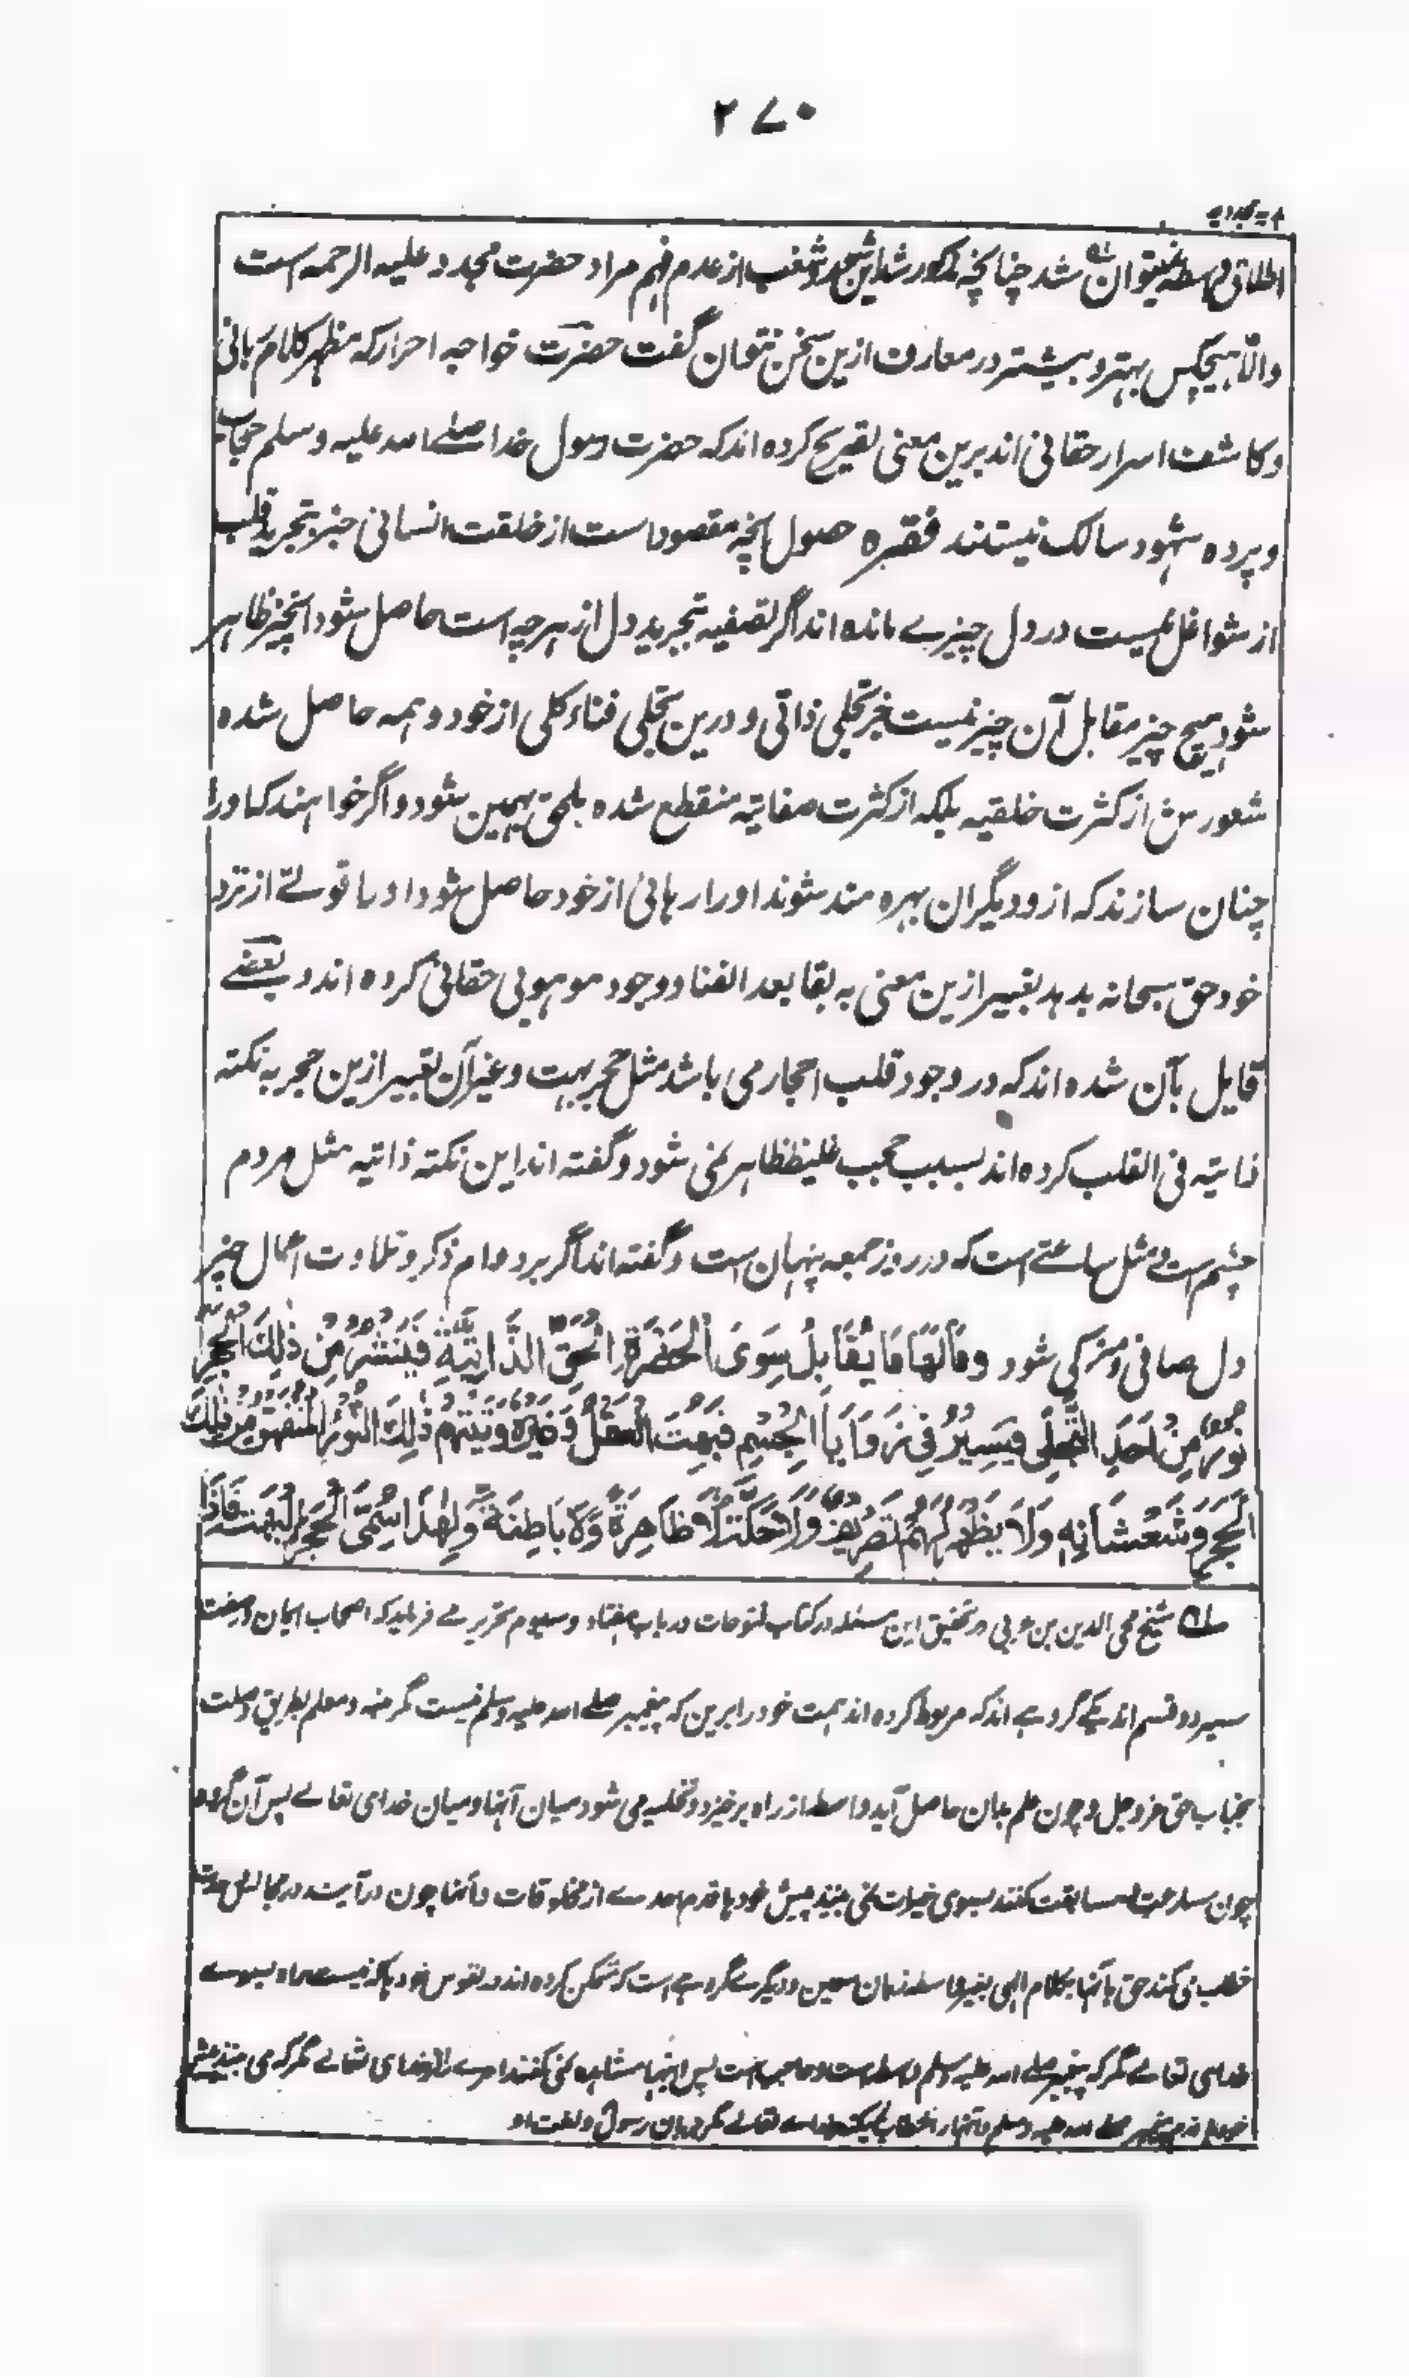 ۲۷۰
اطلاق واسطه نمیتوان شد چنانچه مذکور شد این شور و شغب از عدم فهم مراد حضرت مجدد علیه الرحمه است
والا هیچکس بهتر و بیشتر در معارف ازین سخن نتوان گفت حضرت خواجه احرار که مظهر کلام ربانی
و کاشف اسرار حقانی اند برین معنی تصریح کرده اند که حضرت رسول خدا صلے الله علیه وسلم حجاب
و پرده شهود سالک نیستند فقره حصول آنچه مقصود است از خلقت انسانی جز بتجرید قلب
از شواغل نیست در دل چیزے مانده اند اگر تصفیه تجرید دل از هر چه است حاصل شود آنچیز ظاهر
شود هیچ چیز مقابل آن چیز نیست غیر تجلی ذاتی و درین تجلی فناء کلی از خود و همه حاصل شده
شعورش از کثرت خلقیه بلکه از کثرت صفاتیه منقطع شده بلحق همین شود و اگر خواهند که او را
چنان سازند که ازو دیگران بهره مند شوند او را رهائی از خود حاصل شود او را قوتے از نزد
خود حق سبحانه بدهد تعبیر ازین معنی به بقا بعد الفنا و وجود موهوبی حقانی کرده اند و بعضے
قایل بآن شده اند که در وجود قلب احجار می باشد مثل حجر بهت و غیر آن تعبیر ازین حجر به نکته
ذاتیه فی القلب کرده اند بسبب حجب غلیظ ظاهر نمی شود و گفته اند این نکته ذاتیه مثل مردم
چشم است و مثل ساعتے است که در روز جمعه پنهان است و گفته اند اگر بر دوام ذکر و تلاوت اعمال خیر
دل صافی و مزکی شود وَمَالَهَا مَا يُقَابِلُ سِوَى الْحَضْرَةِ الْحَقِّ الذَّاتِيَّةِ فَيَنْتَشِرُ مِنْ ذٰلِكَ الْحَجَرِ
نُورٌ مِنْ التَّجَلِّي فَيَسِيرُ فِي زَوَايَا الْجِسْمِ فَبَهَتَ الْعَقْلُ وَغَيْرُهُ ذٰلِكَ النُّورُ الْمُنْفَهِقُ مِنْ ذٰلِكَ
الْحَجَرِ وَشَعْشَعَانِهِ وَلَا يَظْهَرُ لَهُمْ تَصْرِيفٌ وَلَا حَرَكَةٌ لَا ظَاهِرَةٌ وَلَا بَاطِنَةٌ وَلِهٰذَا سُمِّيَ الْحَجَرُ الْبَهْتَ فَاِذَا
شیخ محی الدین بن عربی در تحقیق این مسئله در کتاب فتوحات در باب هفتاد و سیوم تحریر مے فرماید که اصحاب ایمان در صفت
سیر دو قسم اند یکے گروهے اند که مربوط کرده اند همت خود را برین که پیغمبر صلے الله علیه وسلم نیست مگر منبه و معلم بطریق وصلت
بجناب حق عزوجل و چون علم بآن حاصل آید واسطه از راه برخیزد و تخلیه می شود میان آنها و میان خدای تعالے پس آن گروه
چون مسابقت کنند بسوی خیرات نمی بینند پیش خودها قدم احدے از مخلوقات و آنها چون در آیند در مجالس
خطاب می کند حق بآنها بکلام الهی بغیر واسطه زبان معین و دیگرے گروهے است که متمکن کرده اند در نفوس خود ها که نیست
خدای تعالے مگر که پیغمبر صلے الله علیه وسلم واسطه است و حاجب است پس اینها مشاهده نمی کنند امرے از خدای تعالے مگر که می بینند پیش
پیغمبر صلے الله علیه وسلم و آنها را خطاب تعالے مگر بزبان رسول و لغت او